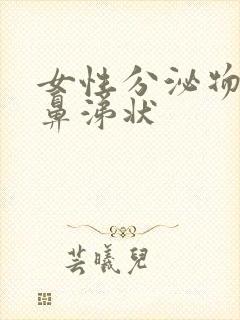 女性分泌物
鼻涕状
芸曦儿